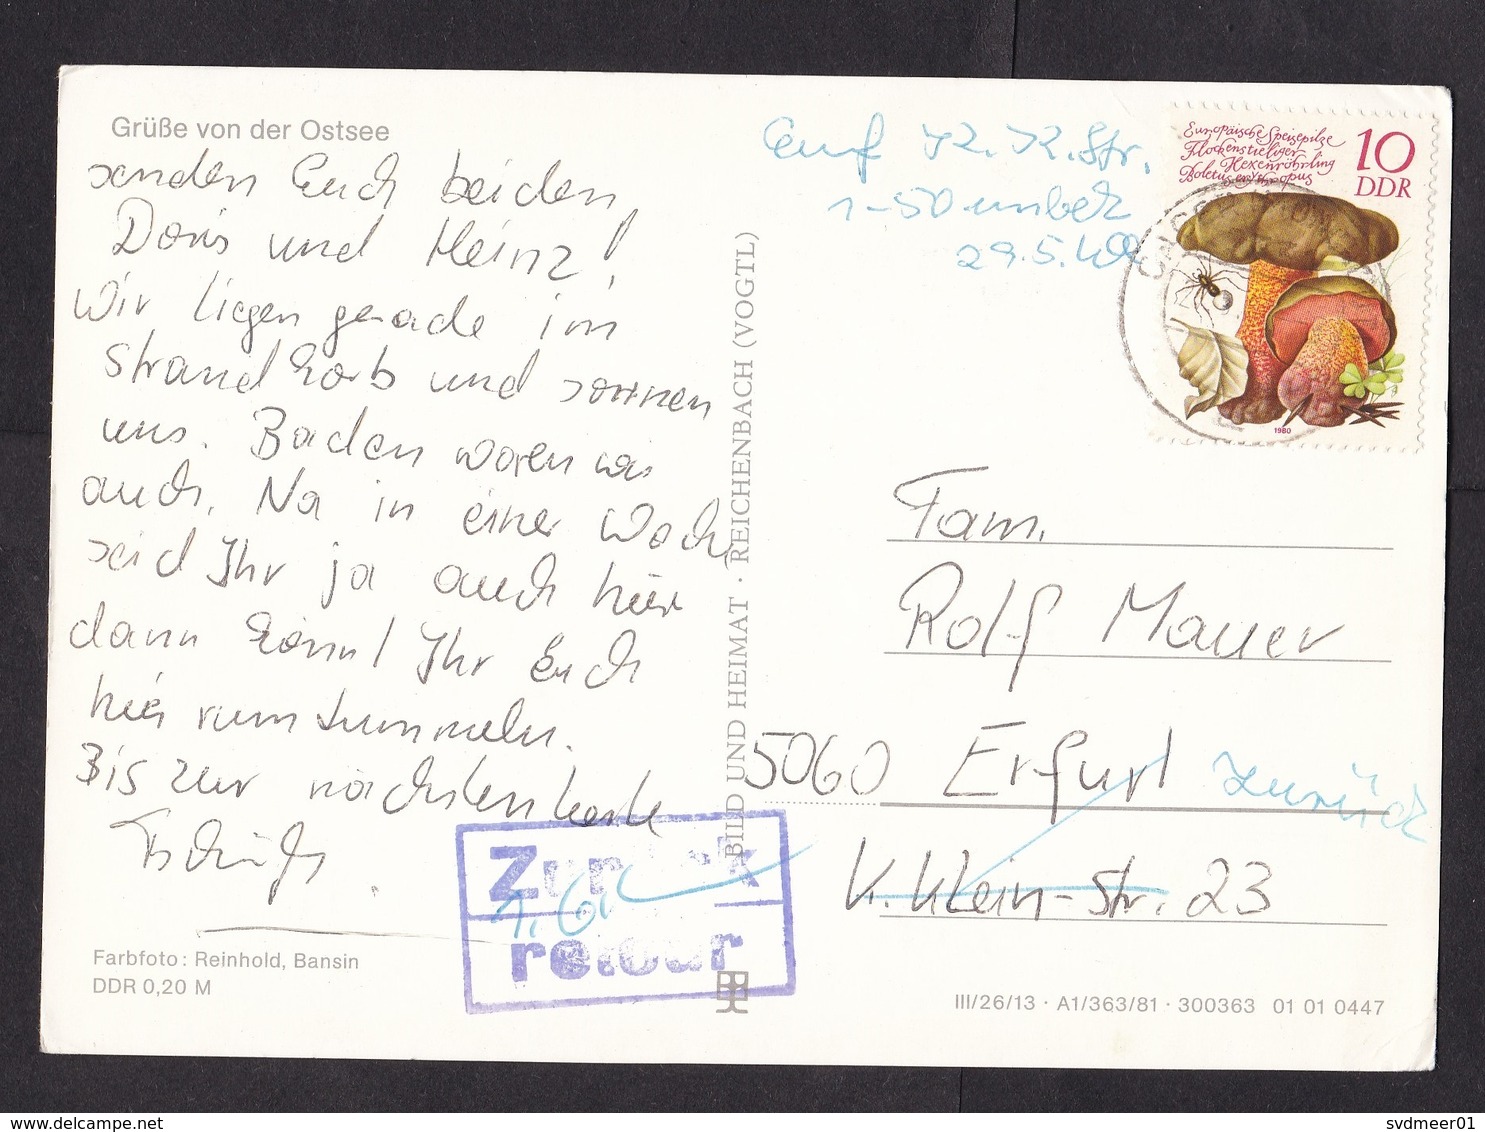 Grüße von der Ostsee
senden Euch beiden,
Doris und Heinz!
Wir liegen gerade im
Strandkorb und sonnen
uns. Baden waren wir
auch. Na in einer Woche
seid Ihr ja auch hier
dann könnt Ihr Euch
hier rumtummeln.
Bis zur nächsten Karte
Tschüß
Farbfoto: Reinhold, Bansin
DDR 0,20 M
BILD UND HEIMAT · REICHENBACH (VOGTL)
Auf K. K. Str.
1-50 unbek
29.5.
Europäische Speisepilze
Flockenstieliger
Hexenröhrling
Boletus erythropus
10
DDR
1980
Fam.
Rolf Mauer
5060 Erfurt
zurück
K. Klein-Str. 23
Zurück
1.6.
retour
III/26/13 · A1/363/81 · 300363 01 01 0447
svdmeer01